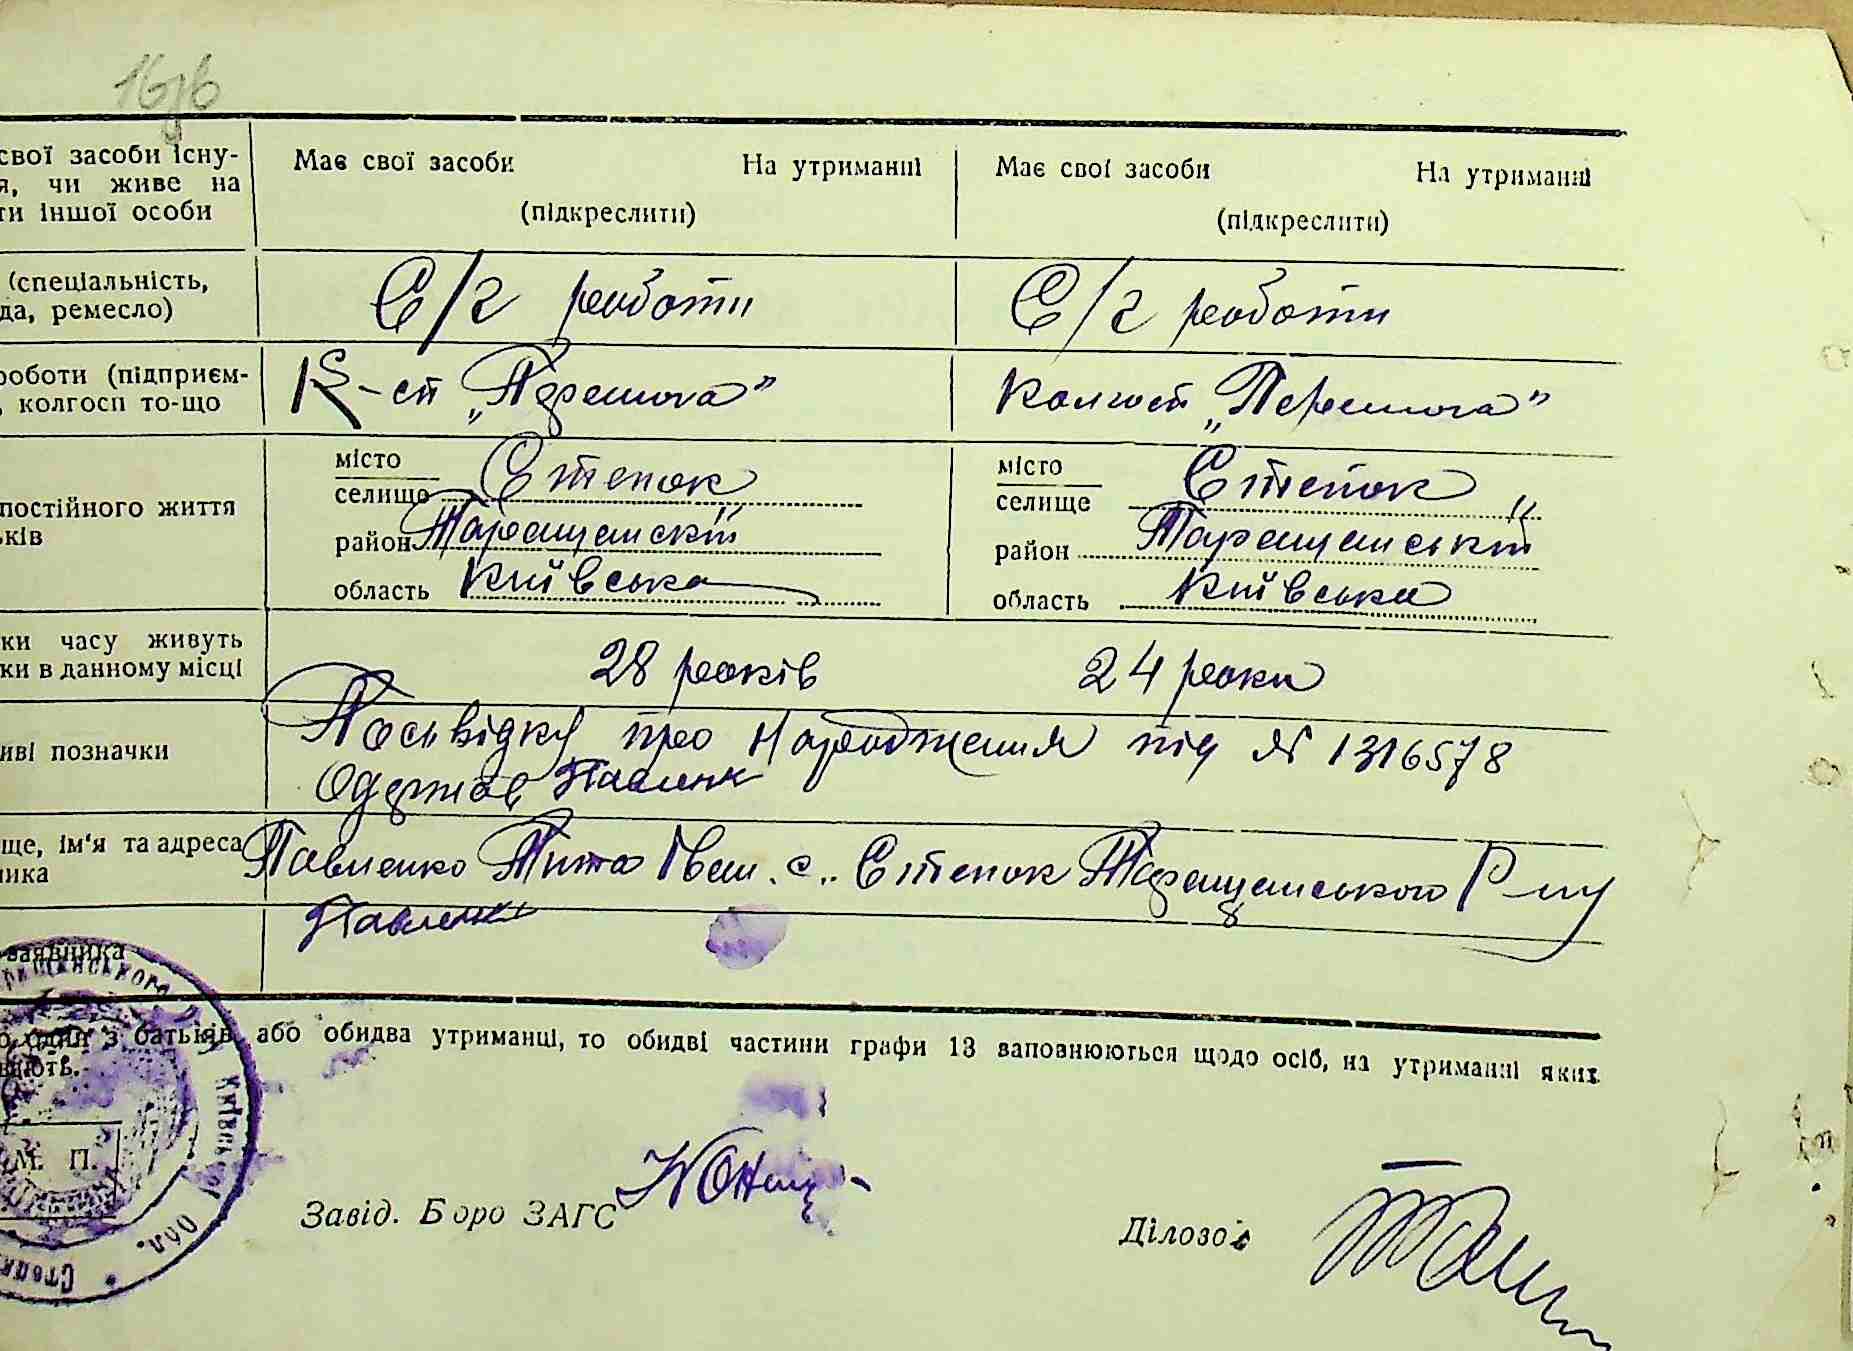 16
свої засоби існу- Має свої засоби На утриманні Має свої засоби На утриманні
я, чи живе на
ти іншої особи (підкреслити) (підкреслити)
(спеціальність, С/г роботи С/г роботи
да, ремесло)
роботи (підприєм- К-сп „Перемога" Колгосп „Перемога"
, колгосп то-що
місто Степок місто Степок
селище селище
постійного життя район Таращанскій район Таращанський
ьків
область Київська область Київська
ки часу живуть 28 років 24 роки
ки в данному місці
Посьвідку про народження під № 1316578
иві позначки
Одержав Павленк
ще, ім'я та адреса Павленко Тита Іван. с. Степок Таращанського Р-ну
ника
Павленк
заявника
один з батьків або обидва утриманці, то обидві частини графи 13 заповнюються щодо осіб, на утриманні яких
М. П.
Київської Обл.
Завід. Бюро ЗАГС
Діловод